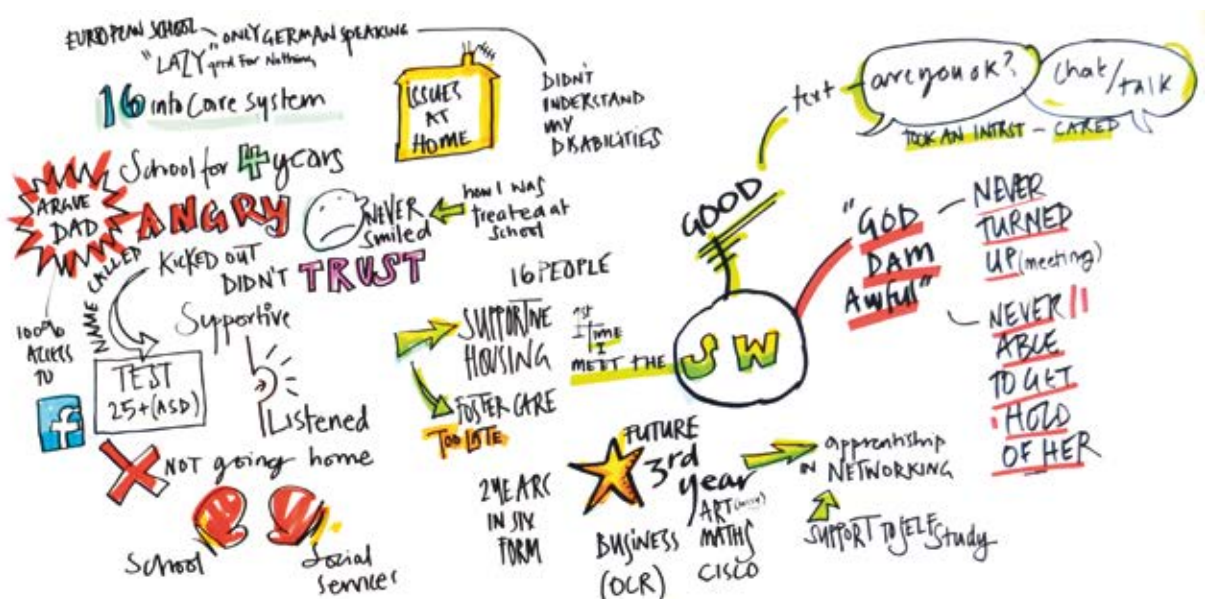 EUROPEAN SCHOOL
ONLY GERMAN SPEAKING
"LAZY" good For Nothing
16 into Care System
ISSUES
AT
HOME
DIDN'T
UNDERSTAND
MY
DISABILITIES
School for 4 years
ARGUE
DAD
ANGRY
NEVER
Smiled
how I was
treated at
school
NAME CALLED
KICKED OUT
DIDN'T TRUST
100%
ACCESS
TO
f
TEST
25+(ASD)
Supportive
Listened
NOT going home
School
Social
Services
16 PEOPLE
SUPPORTIVE
HOUSING
FOSTER CARE
TOO LATE
1st
Time
I
MEET THE
SW
GOOD
text
are you ok?
chat/
talk
TOOK AN INTRST - CARED
"GOD
DAM
AWfUll"
NEVER
TURNED
UP (meeting)
NEVER
ABLE
TO GET
HOLD
OF HER
2 YEARS
IN SIX
FORM
FUTURE
3rd
year
BUSINESS
(OCR)
ART
MATHS
CISCO
apprentiship
IN NETWORKING
SUPPORT TO SELF Study